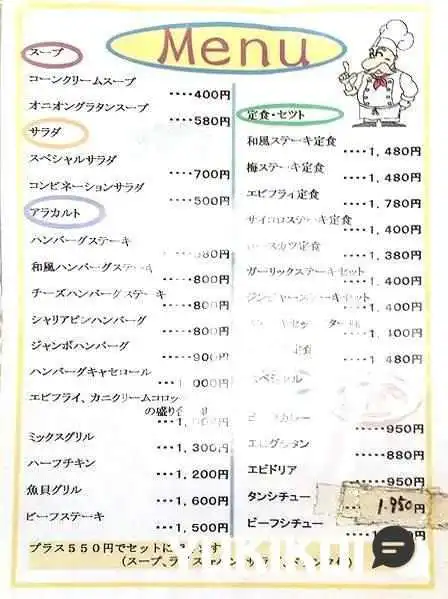 Menu
スープ
コーンクリームスープ
････400円
オニオングラタンスープ
････580円
サラダ
スペシャルサラダ
････700円
コンビネーションサラダ
････500円
アラカルト
ハンバーグステーキ
和風ハンバーグステーキ
････800円
チーズハンバーグステーキ
････800円
シャリアピンハンバーグ
････800円
ジャンボハンバーグ
････900円
ハンバーグキャセロール
エビフライ、カニクリームコロッ
の盛り
ミックスグリル
･･･1,300円
ハーフチキン
･･･1,200円
魚貝グリル
･･･1,600円
ビーフステーキ
･･･1,500円
プラス550円でセットに
(スープ、ラ
定食・セット
和風ステーキ定食
････1,480円
梅ステーキ定食
････1,480円
エビフライ定食
････1,780円
サイコロステーキ定食
････1,400円
ースカツ定食
････1,380円
ガーリックステーキセット
････1,400円
ジンジャーステーキセット
････1,400円
定食
スペシャル
ビーフカレー
･････950円
エビグラタン
･････880円
エビドリア
･････950円
タンシチュー
1.950円
ビーフシチュー